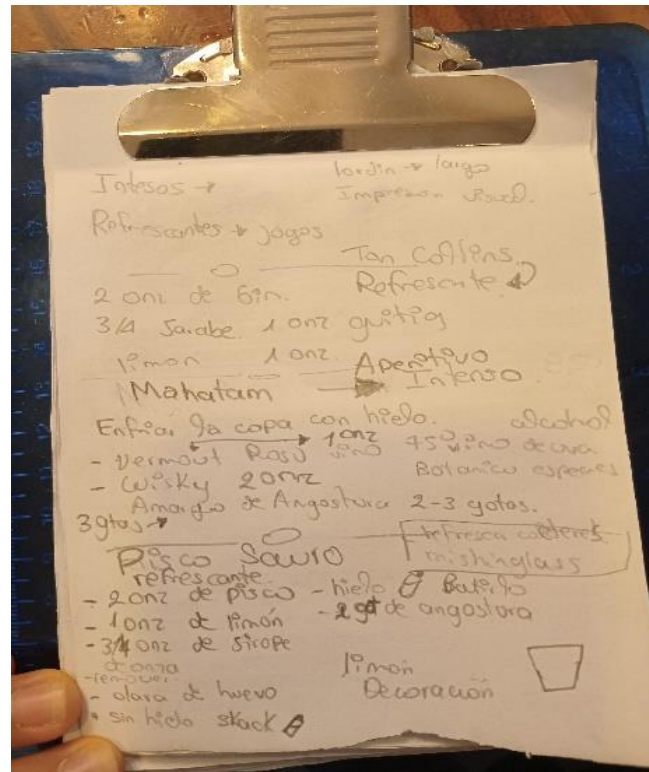 Intesos →
lardin → largo
Impresion Visual.
Refrescantes → Jogos
Tan Collins.
Refrescante
2 onz de Gin.
3/4 Jarabe 1 onz guitig
limon 1 onz
Aperitivo
Mahatam → Intenso
Enfriar la copa con hielo. alcohol
- Vermout Roso vino 1 onz 45º vino de uva
Botanico especies
- Wisky 2 onz
Amargo de Angostura 2-3 gotas.
3 gtas →
Pisco Sauro
refrescante.
mishinglass
- 2 onz de pisco - hielo Batirlo
- 1 onz de limón - 2 got de angostura
- 3/4 onz de sirope
de onza
- remover
- clara de huevo
- sin hielo skack
limon
Decoración